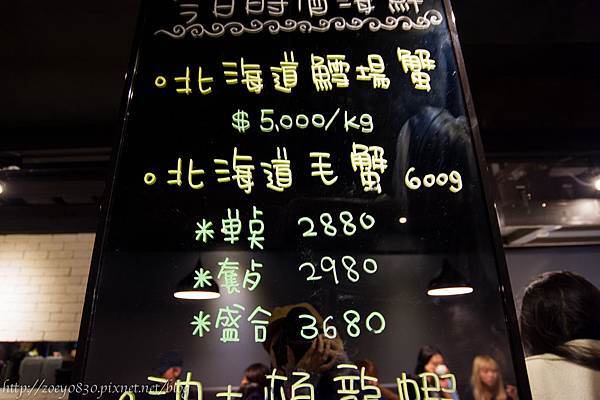 今日時價海鮮
。北海道鱈場蟹
$5,000/kg
。北海道毛蟹 600g
*單点 2880
*套点 2980
*盛合 3680
龍蝦
http://zoey0830.pixnet.net/blog